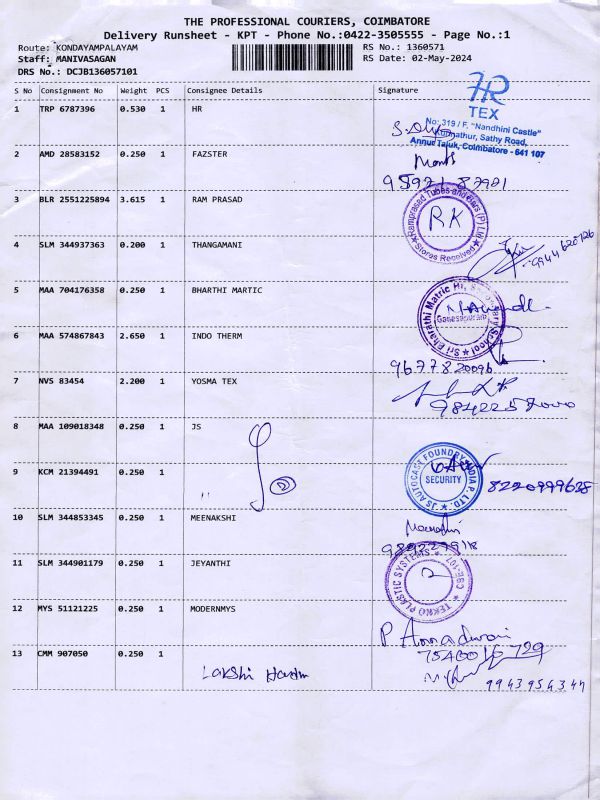 THE PROFESSIONAL COURIERS, COIMBATORE
Delivery Runsheet - KPT - Phone No.:0422-3505555 - Page No.:1
Route: KONDAYAMPALAYAM RS No.: 1360571
Staff: MANIVASAGAN RS Date: 02-May-2024
DRS No.: DCJB136057101
S No Consignment No Weight PCS Consignee Details Signature
1 TRP 6787396 0.530 1 HR
HR
TEX
No: 319 / F, "Nandhini Castle"
Kunnathur, Sathy Road,
Annur Taluk, Coimbatore - 641 107
2 AMD 28583152 0.250 1 FAZSTER
3 BLR 2551225894 3.615 1 RAM PRASAD
Ramprasad Tubes and Bars (P) Ltd
RK
Stores Received
4 SLM 344937363 0.200 1 THANGAMANI
5 MAA 704176358 0.250 1 BHARTHI MARTIC
Sri Bharathi Matric Hr. Secondary School
6 MAA 574867843 2.650 1 INDO THERM
9677820096
7 NVS 83454 2.200 1 YOSMA TEX
8 MAA 109018348 0.250 1 JS
9 KCM 21394491 0.250 1
JS AUTOCAST FOUNDRY INDIA P. LTD.
SECURITY
8220999628
10 SLM 344853345 0.250 1 MEENAKSHI
11 SLM 344901179 0.250 1 JEYANTHI
TEKNO PLASTIC SYSTEMS CBE-107
12 MYS 51121225 0.250 1 MODERNMYS
13 CMM 907050 0.250 1
Lakshi
9943954344